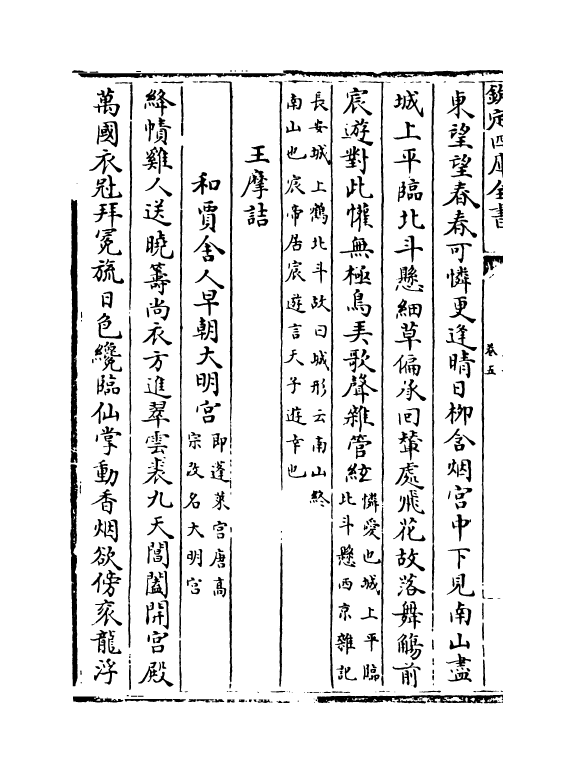 欽定四庫全書
卷五
東望望春春可憐更逢晴日柳含烟宫中下見南山盡
城上平臨北斗懸細草偏承回輦處飛花故落舞觴前
宸遊對此懽無極鳥哢歌聲雜管絃
憐愛也城上平臨
北斗懸西京雜記
長安城上鶴北斗故曰城形云南山終
南山也宸帝居宸遊言天子遊幸也
王摩詰
和賈舍人早朝大明宫
即蓬萊宫唐高
宗改名大明宫
絳幘雞人送曉籌尚衣方進翠雲裘九天閶闔開宫殿
萬國衣冠拜冕旒日色纔臨仙掌動香烟欲傍衮龍浮